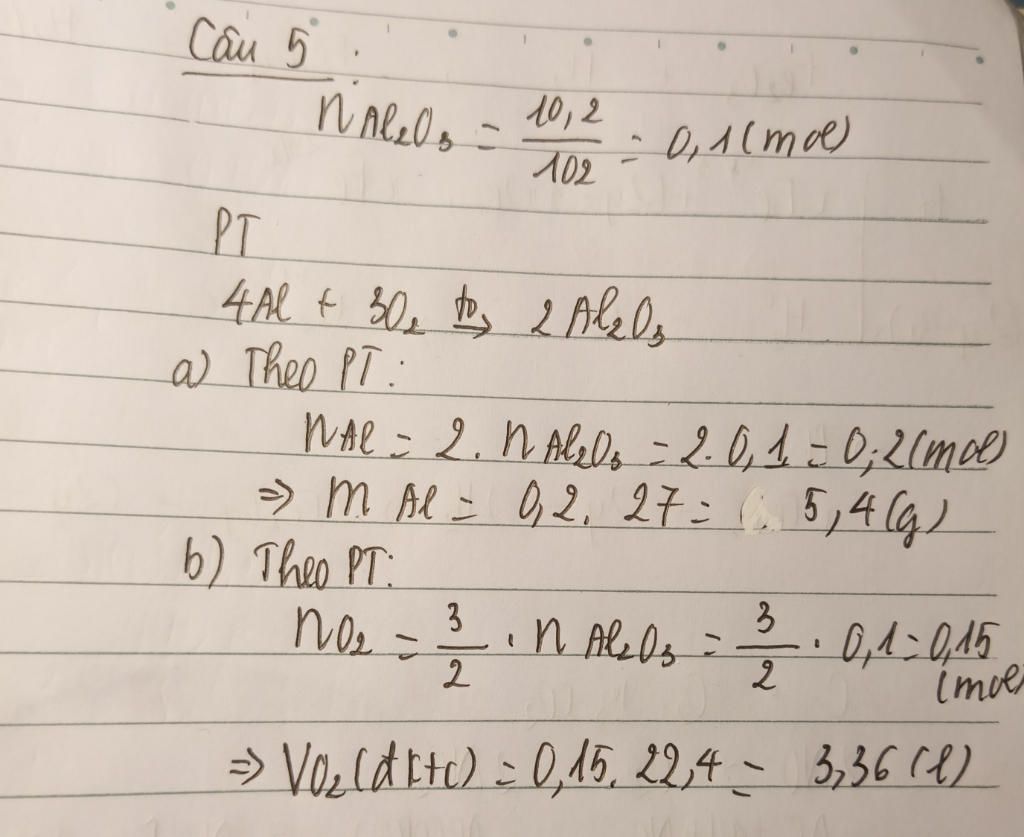 Câu 5 :
nAl₂O₃ = 10,2/102 = 0,1 (mol)
PT
4Al + 3O₂ t⁰→ 2Al₂O₃
a) Theo PT:
nAl = 2. nAl₂O₃ = 2. 0,1 = 0,2 (mol)
⇒ mAl = 0,2. 27 = 5,4 (g)
b) Theo PT:
nO₂ = 3/2 . nAl₂O₃ = 3/2 . 0,1 = 0,15
(mol)
⇒ VO₂ (đktc) = 0,15. 22,4 = 3,36 (l)